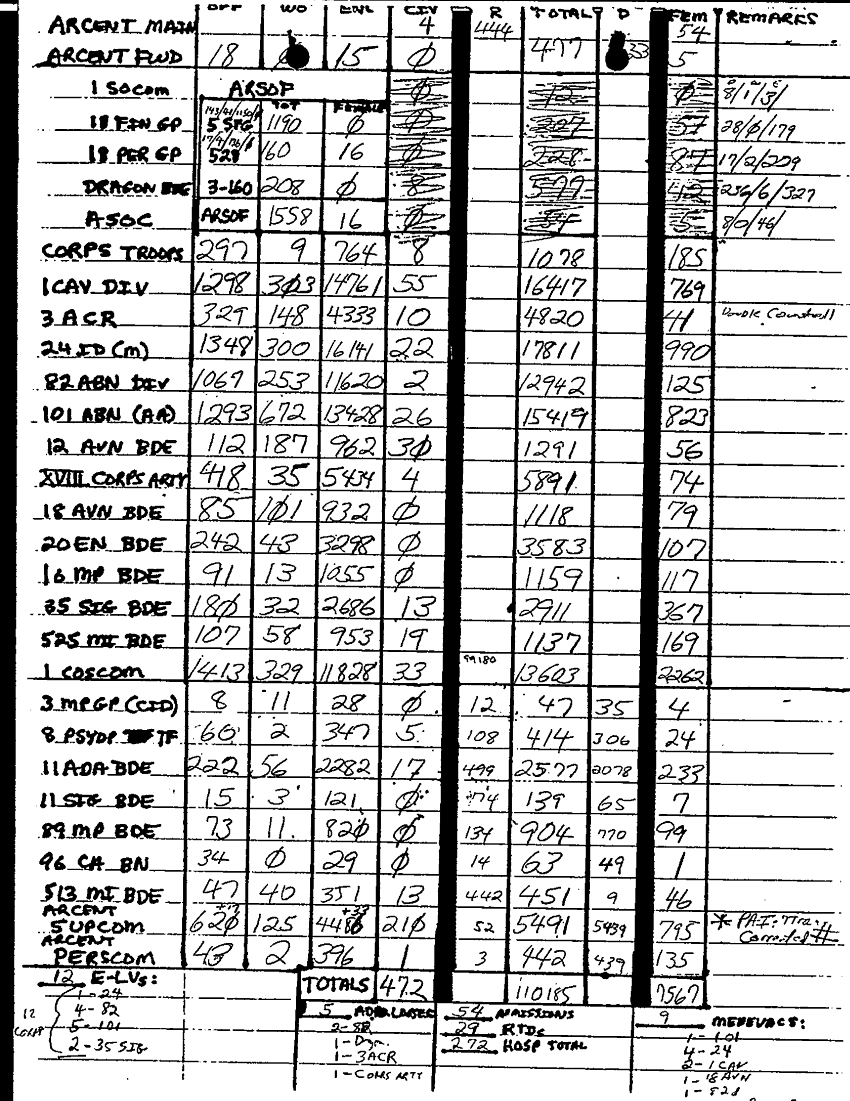 OFF WO ENL CIV R TOTAL D FEM REMARKS
ARCENT MAIN 4 444 54
ARCENT FWD 18 15 Ø 477 33 5
1 SOCOM ARSOF Ø 12 Ø 8/1/3/
TOT FEMALE
18 FIN GP 5 SIG 1190 Ø Ø 207 51 28/Ø/179
18 PER GP 528 160 16 Ø 228 87 17/2/209
DRAGON BDE 3-160 208 Ø 8 577 42 236/6/327
ASOC ARSOF 1558 16 Ø 54 5 8/0/46/
CORPS TROOPS 297 9 764 8 1078 185
1 CAV DIV 1298 303 14761 55 16417 769
3 ACR 329 148 4333 10 4820 41 Double Counted
24 ID (M) 1348 300 16141 22 17811 990
82 ABN DIV 1067 253 11620 2 12942 125
101 ABN (AA) 1293 672 13428 26 15419 823
12 AVN BDE 112 187 962 3Ø 1291 56
XVIII CORPS ARTY 418 35 5434 4 5891 74
18 AVN BDE 85 1Ø1 932 Ø 1118 79
20 EN BDE 242 43 3298 Ø 3583 107
16 MP BDE 91 13 1055 Ø 1159 117
35 SIG BDE 18Ø 32 2686 13 2911 367
525 MI BDE 107 58 953 19 1137 169
1 COSCOM 1413 329 11828 33 99180 13603 2262
3 MP GP (CID) 8 11 28 Ø 12 47 35 4
8 PSYOP TF 60 2 347 5 108 414 306 24
11 ADA BDE 222 56 2282 17 499 2577 2078 233
11 SIG BDE 15 3 121 Ø 74 139 65 7
89 MP BDE 73 11 82Ø Ø 134 904 770 99
96 CA BN 34 Ø 29 Ø 14 63 49 1
513 MI BDE 47 40 351 13 442 451 9 46
ARCENT
SUPCOM 62Ø 125 21Ø 52 5491 5439 795 * PAI:
Corrected #
ARCENT
PERSCOM 43 2 396 1 3 442 439 135
12 E-LVs: TOTALS 472 110185 7567
1-24 5 54 ADMISSIONS 9 MEDEVACS:
12 CORPS 4-82 2-82 29 RTDs 1-101
5-101 1-Dgn. 272 HOSP TOTAL 4-24
2-35 SIG 1-3ACR 2-1 CAV
1-CORPS ARTY 1-18 AVN
1-82d